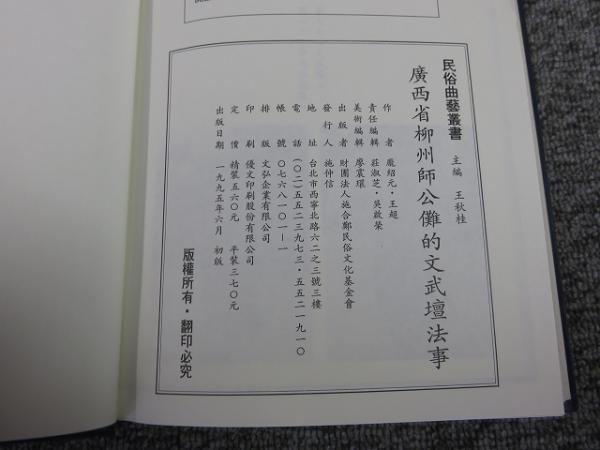 民俗曲藝叢書 主編 王秋桂
廣西省柳州師公儺的文武壇法事
作者 龐紹元・王超
責任編輯 莊淑芝・吳啟榮
美術編輯 廖震環
出版者 財團法人施合鄭民俗文化基金會
發行人 施仲信
地址 台北市西寧北路六二之三號三樓
電話 (〇二)五五二三九七三・五五二一九一〇
帳號 〇七六八一〇一―一
排版 文弘企業有限公司
印刷 優文印刷股份有限公司
定價 精裝五六〇元 平裝三七〇元
出版日期 一九九五年六月 初版
版權所有・翻印必究